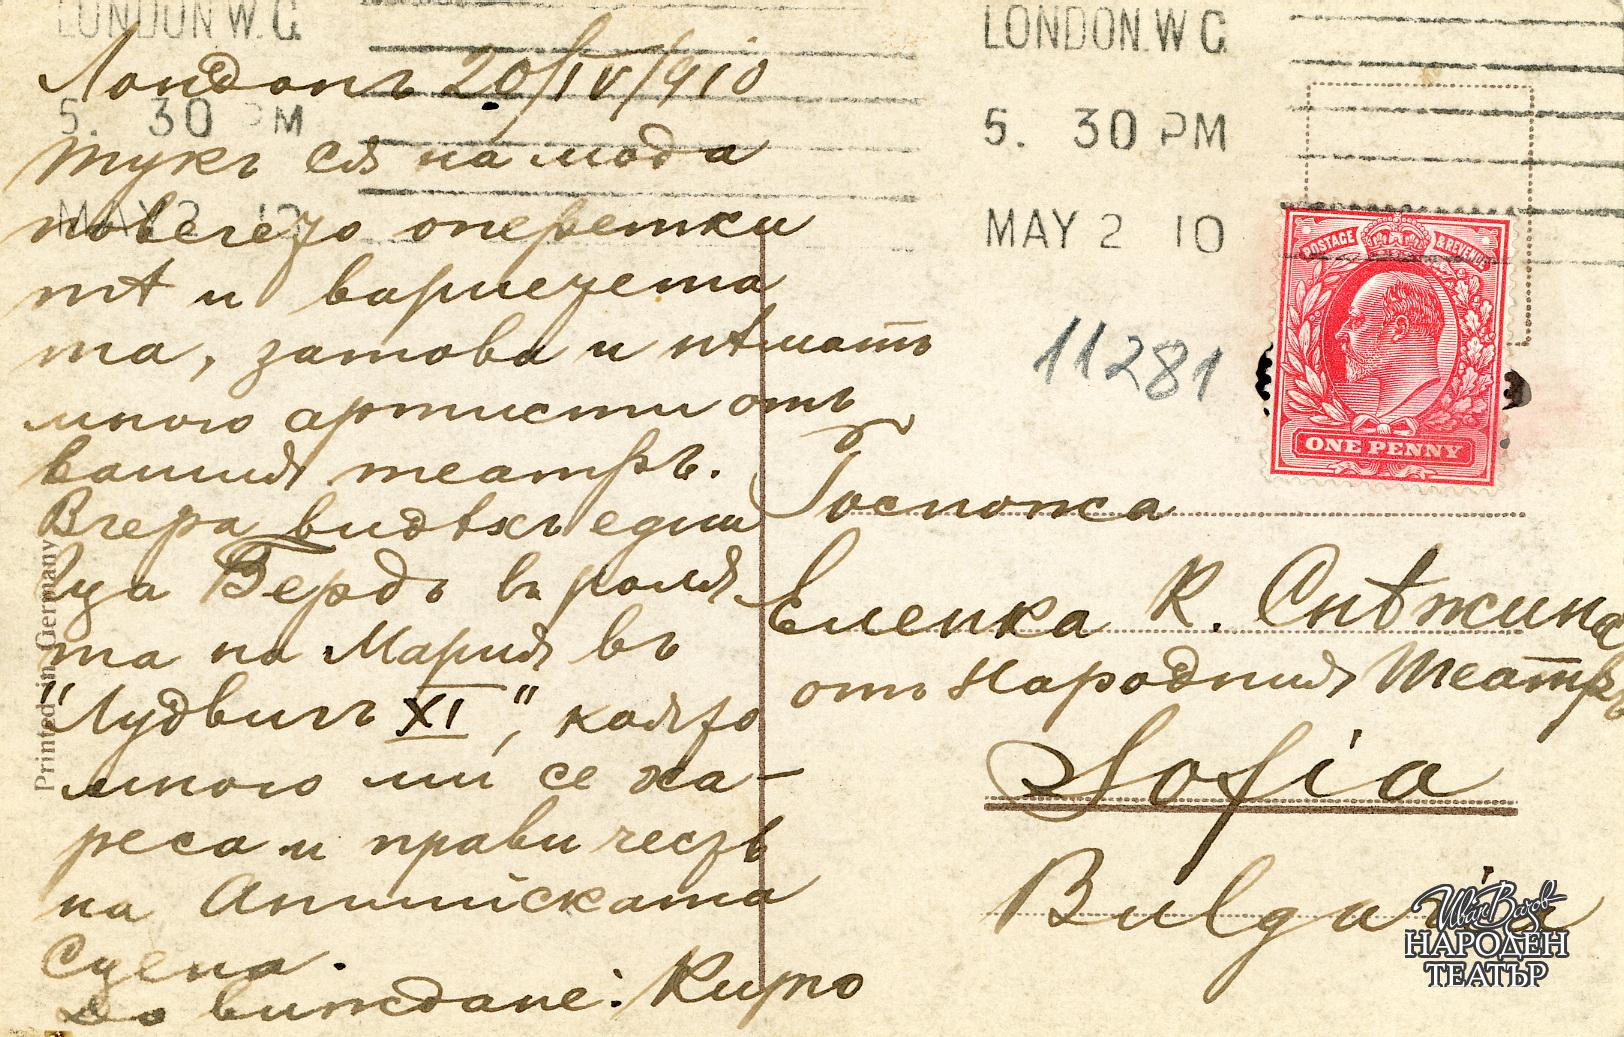 LONDON.W.C.
5. 30 PM
MAY 2 10
LONDON.W.C.
5. 30 PM
MAY 2 10
Лондонъ 20/IV/910
Тукъ ся на мода
повечето оперетки
тѣ и вариетета
та, затова и нѣматъ
много артисти отъ
вашия театръ.
Вчера видѣхъ една
Бердъ въ роля
та на Мария въ
"Лудвигъ XI", която
много ми се ха-
реса и прави честь
на Английската
Сцена.
До виждане: Киро
POSTAGE & REVENUE
ONE PENNY
11281
Госпожа
Еленка К. Снѣжина
отъ Народния Театръ
Sofia
Bulgaria
Printed in Germany
Иван Вазов
НАРОДЕН
ТЕАТЪР